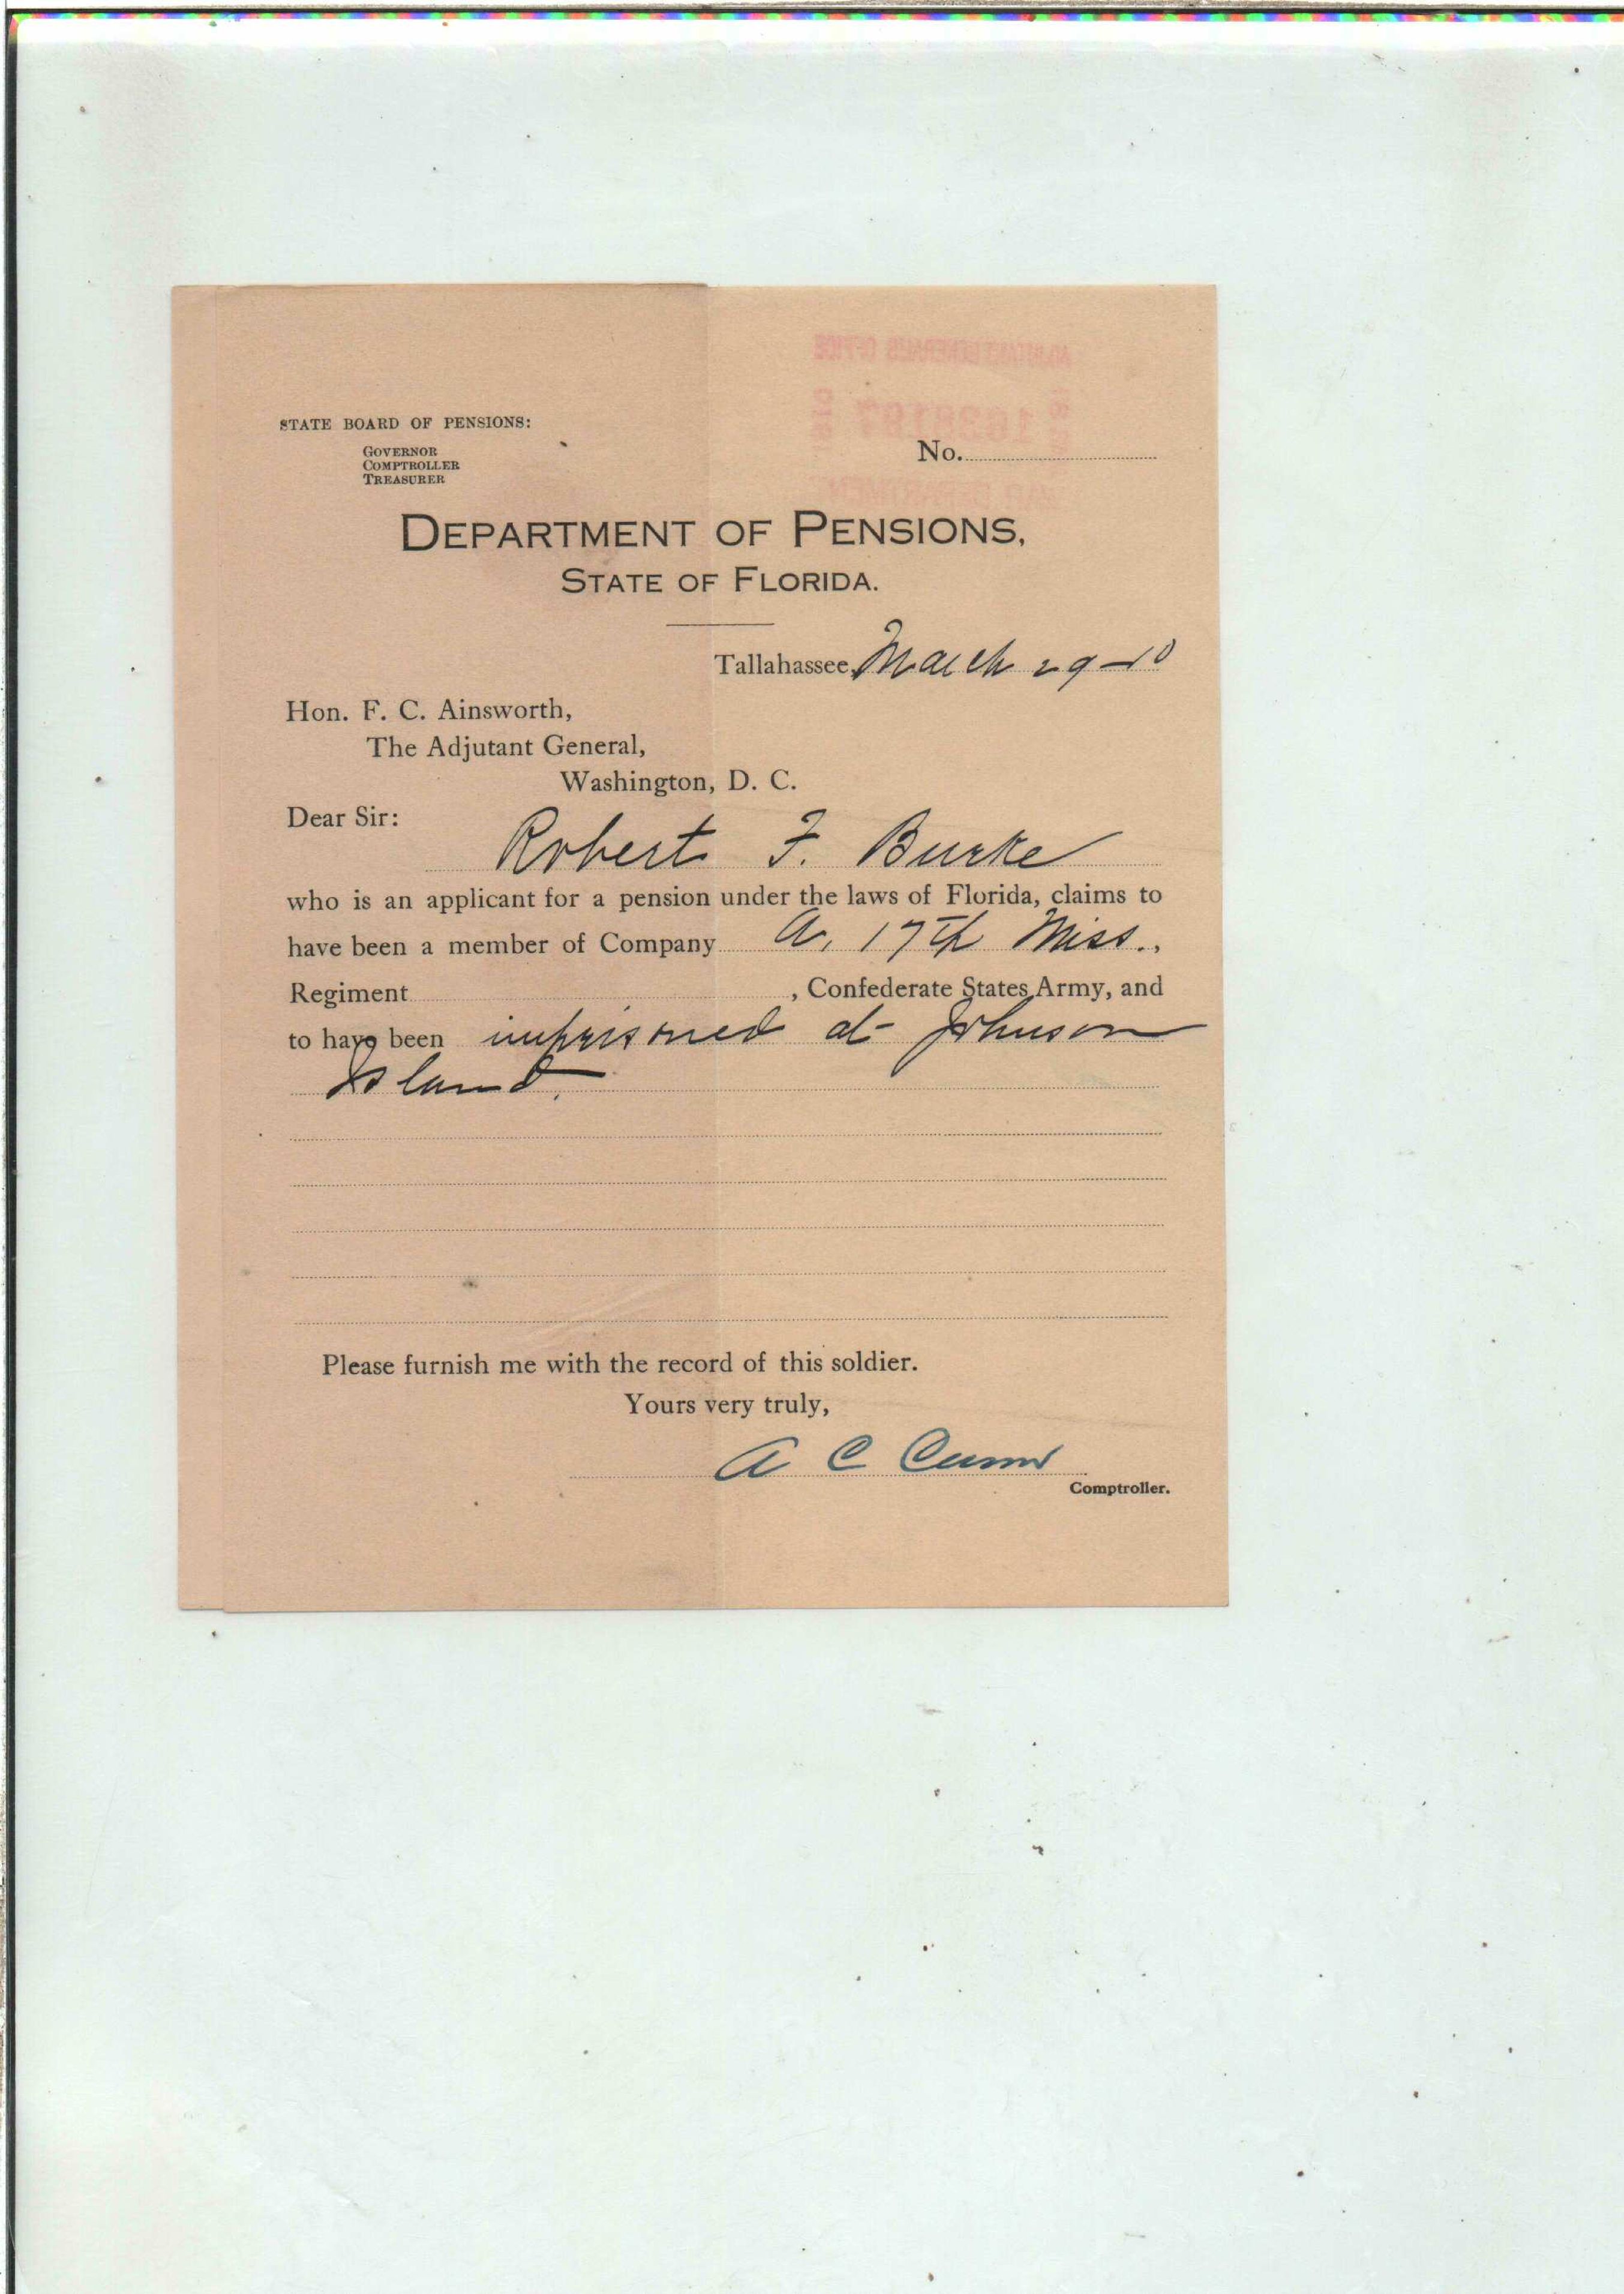 STATE BOARD OF PENSIONS:
GOVERNOR
COMPTROLLER
TREASURER
No.
DEPARTMENT OF PENSIONS,
STATE OF FLORIDA.
Tallahassee, March 29-10
Hon. F. C. Ainsworth,
The Adjutant General,
Washington, D. C.
Dear Sir:
Robert F. Burke
who is an applicant for a pension under the laws of Florida, claims to
have been a member of Company A, 17th Miss.,
Regiment , Confederate States Army, and
to have been imprisoned at Johnson
Island.
Please furnish me with the record of this soldier.
Yours very truly,
A C Croom
Comptroller.